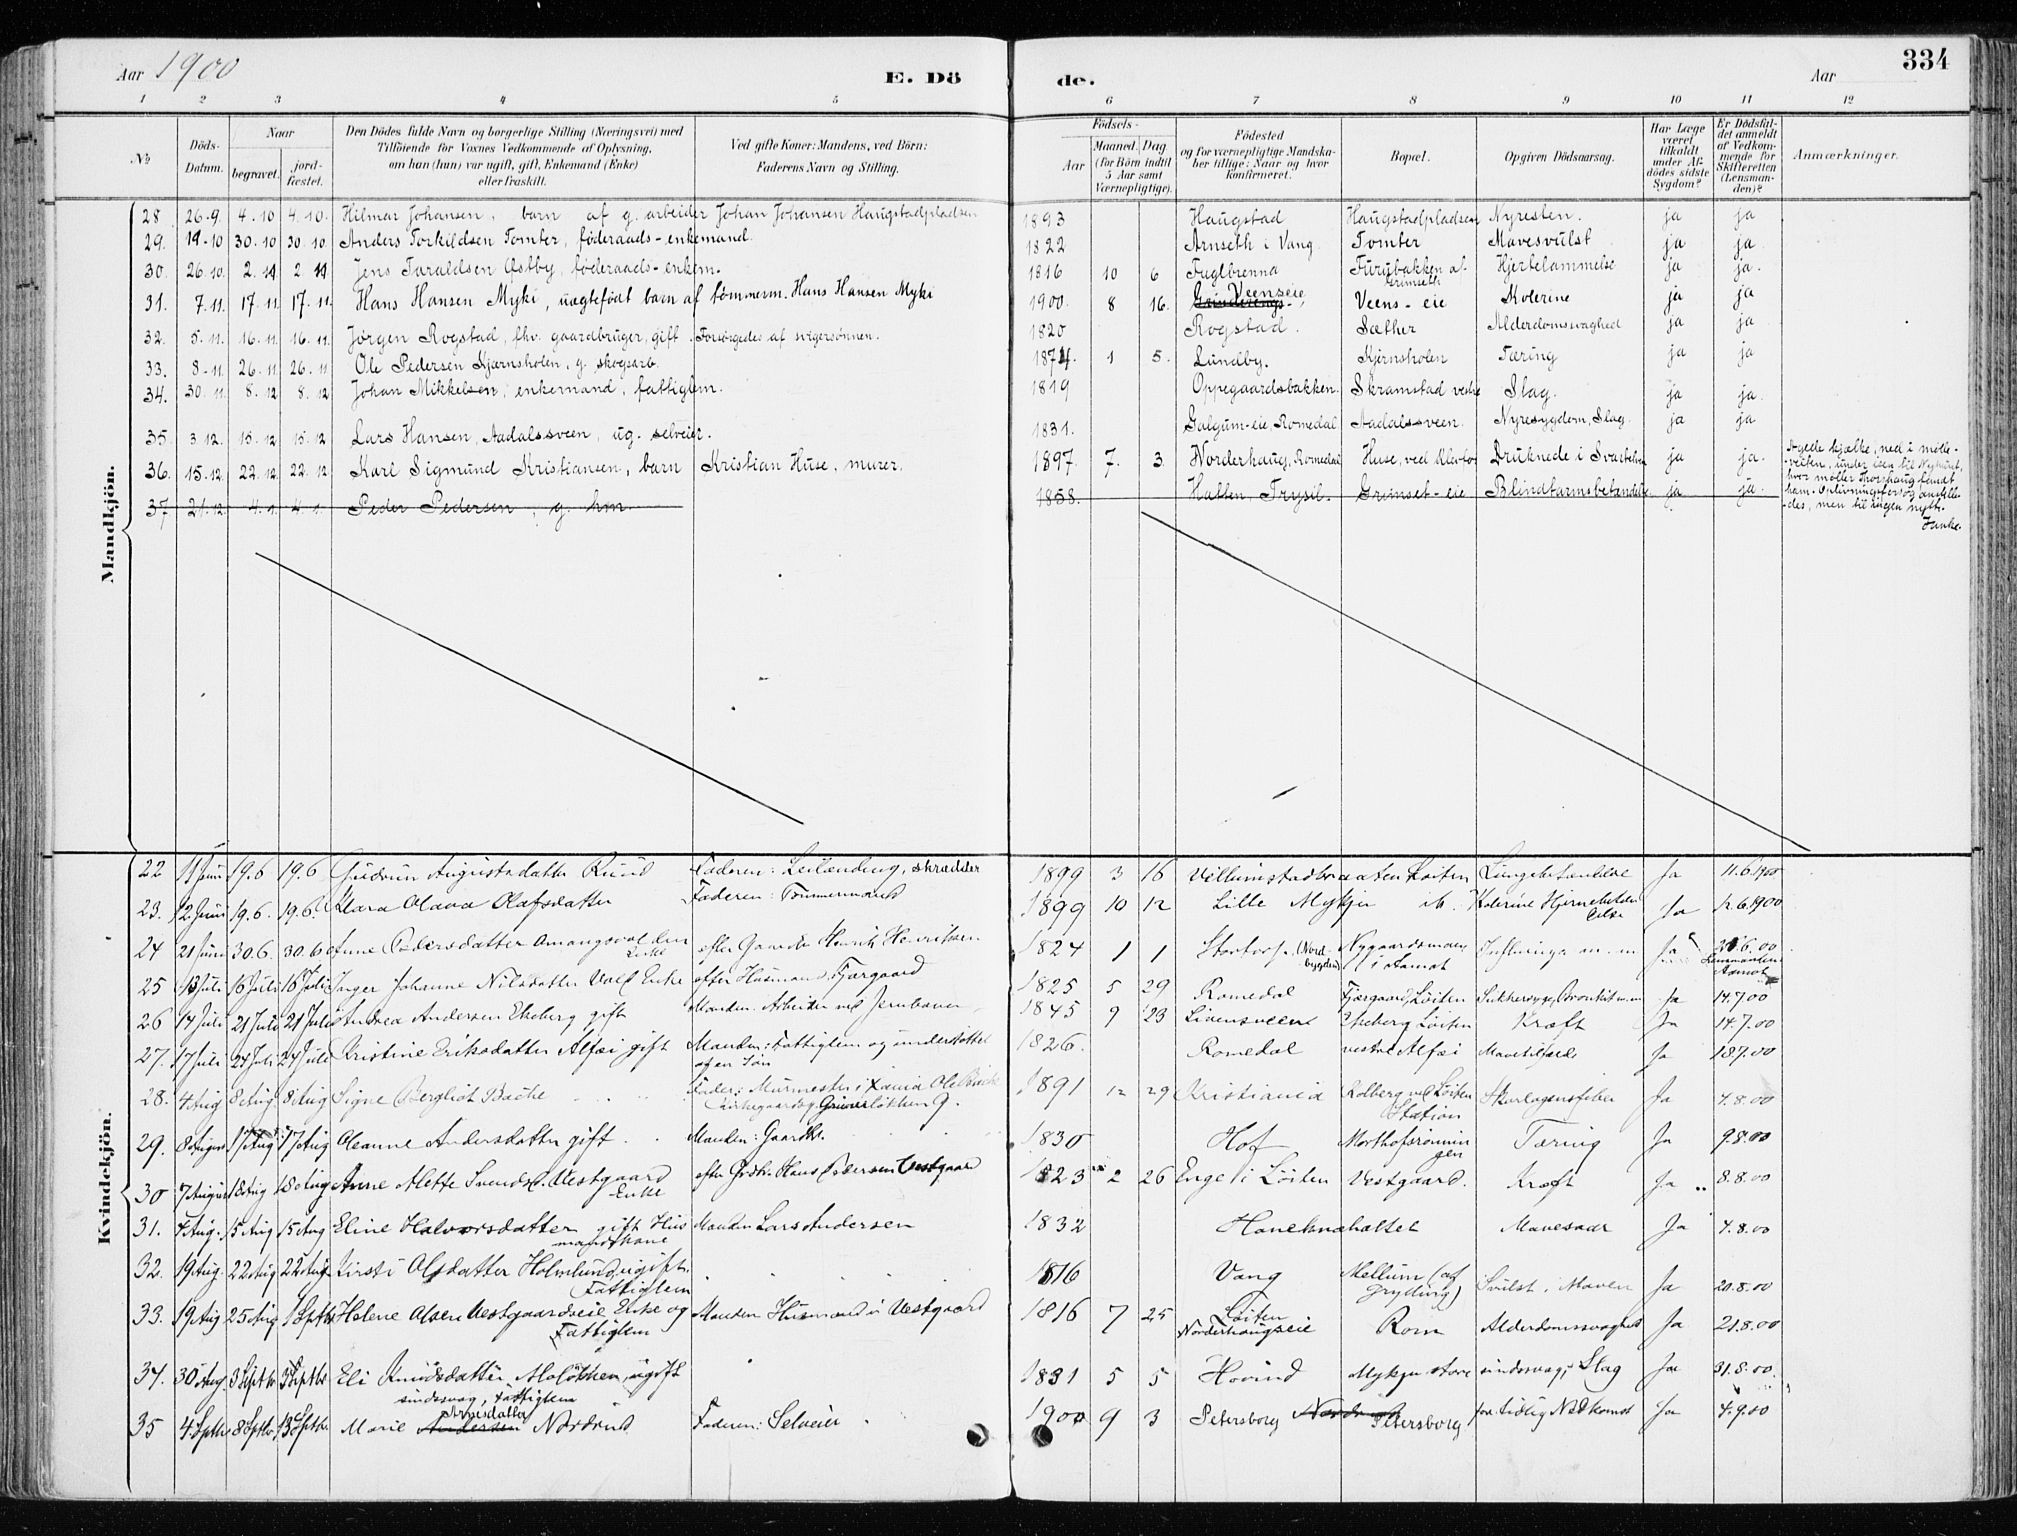 Aar 1900 E. Dö de. Aar 334
1 2 3 4 5 6 7 8 9 10 11 12
№ Döds-Datum. Naar begravet. jordfæstet. Den Dödes fulde Navn og borgerlige Stilling (Næringsvei) med Tilföiende for Voxnes Vedkommende af Oplysning, om han (hun) var ugift, gift, Enkemand (Enke) eller fraskilt. Ved gifte Koner: Mandens, ved Börn: Faderens Navn og Stilling. Födsels- Aar Maaned. Dag (for Börn indtil 5 Aar samt Værnepligtige). Födested og for værnepligtige Mandskaber tillige: Naar og hvor konfirmeret. Bopæl. Opgiven Dödsaarsag. Har Læge været tilkaldt under Afdödes sidste Sygdom? Er Dödsfaldet anmeldt af Vedkommende for Skifteretten (Lensmanden)? Anmærkninger.
Mandkjön.
28 26.9. 4.10 4.10. Hilmar Johansen, barn af g. arbeider Johan Johansen Haugstadpladsen 1893 Haugstad Haugstadpladsen Nyresten. ja ja
29. 19-10 30.10 30.10. Anders Torkildsen Tomter, föderaads-enkemand. 1822 Arnseth i Vang. Tomter Mavesvulst ja ja.
30. 26.10. 2.11 2.11 Jens Taraldsen Østby, föderaads-enkem. 1816 10 6 Fuglbrenna Furubakken af Grimseth Hjertelammelse ja ja.
31. 7.11. 17.11 17.11. Hans Hansen Myki, uægtefödt barn af tömmerm. Hans Hansen Myki 1900. 8 16. Veenseie Veens-eie Kolerine ja ja
32. 5.11. 16.11 16.11. Jörgen Rogstad, fhv. gaardbruger, gift. Forsörgedes af svigersönnen. 1820 Rogstad. Sæther Alderdomssvaghed ja ja
33. 8-11. 26.11 26.11 Ole Pedersen Kjærnsholen, g. skogsarb. 1874. 1 5. Lundby. Kjernsholen Tæring ja ja
34. 30.11. 8.12 8.12 Johan Mikkelsen, enkemand, fattiglem. 1819 Oppegaardsbakken. Skramstad vestre Slag. ja ja.
35. 3.12. 15.12 15.12 Lars Hansen, Aadalssveen, ug. selveier. 1831. Galgum-eie, Romedal Aadalssveen. Nyresygdom, Slag. ja ja
36. 15.12. 22.12 22.12. Karl Sigmund Kristiansen, barn Kristian Huse, murer. 1897. 7. 3. Norderhaug, Romedal Huse, ved Druknede i Svartelven ja ja.
37 31.12. 4.1. 4.1. Peder Pedersen, g. hm. 1858. Hatten, Trysil. Grimset-eie Blindtarmsbetændelse ja ja.
Kvindekjön.
22 11 Juni 19.6 19.6 Gudrun Augustsdatter Ruud Faderen: Leilænding, skrædder 1899 3 16 Villumstadbraaten Løiten Lungebetændelse Ja 11.6.1900
23. 12 Juni 19.6. 19.6. Klara Olava Olafsdatter Faderen: Tømmermand 1899 10 12 Lille Mykjer Kolerine Hjernebetændelse Ja 12.6.1900
24 21 Juni 30.6. 30.6 Anne Pedersdatter Enke efter Gaardb. Henrik Henriksen 1824 1 1 Stortorp. (Nordbygden) i Aamot Influenza m.m Ja Lensmanden Aamot
25 13 Juli 16 Juli 16 Juli Inger Johanne Nilsdatter Vold Enke efter Husmand Fjærgaard 1825 5 29 Romedal Fjærgaard, Løiten Sukkersyge, Bronkit m.m Ja 14.7.00
26 14 Juli 21 Juli 21 Juli Andrea Andersen Ekeberg gift Manden: Arbeider ved Jernbanen 1845 9 23 Lisensveen Ekeberg Løiten Kræft Ja 14.7.00
27. 17 Juli 24 Juli 24 Juli Kristine Eriksdatter Alfæi gift Manden: Fattiglem og understøttet af en Søn 1826. Romedal vestre Alfæi Ja 18.7.00
28. 4 Aug 8 Aug 8 Aug Signe Bergliot Bache Fader: Murmester i Xania Ole Bache Grünerløkken 9. 1891 12 29 Kristiania Kolberg ved Løiten Station Skarlagensfeber Ja 4.8.00
29. 8 August 17 Aug 17 Aug Oleanne Andersdatter gift Manden: Gaardbr. 1830 Hof Tæring Ja 9.8.00
30 7 August 18 Aug 18 Aug Anne Mette Svendsd. Vestgaard Enke efter Grdbr. Hans Pedersen Vestgaard 1823 2 26 Enge i Løiten Vestgaard. Kræft Ja 8.8.00
31. 4 Aug. 15 Aug 15 Aug Eline Halvorsdatter gift Husmandskone Manden Lars Andersen 1832 Mavesaar Ja 4.8.00
32. 19 Aug. 22 Aug 22 Aug. Kirsti Olsdatter Holmlund, ugift. Fattiglem 1816 Vang Mellum (af Gryting) Svulst i Maven Ja 20.8.00
33. 19 Aug 25 Aug 1 Septbr Helene Olsen Vestgaardseie Enke og Fattiglem Manden Husmand i Vestgaard 1816 7 25 Løiten Norderhaugseie Rom Alderdomssvaghed Ja 21.8.00
34. 30 Aug 3 Septbr 3 Septbr Eli Knudsdatter Moløkken, ugift sindssvag, fattiglem 1831 5 5 Hovind Mykjer store sindssvag, Slag Ja 31.8.00.
35 4 Septbr 8 Septbr 13 Septbr Marie Arnesdatter Nordrud Faderen: Selveier 1900 9 3 Petersborg Petersborg for tidlig Nedkomst Ja 4.9.00